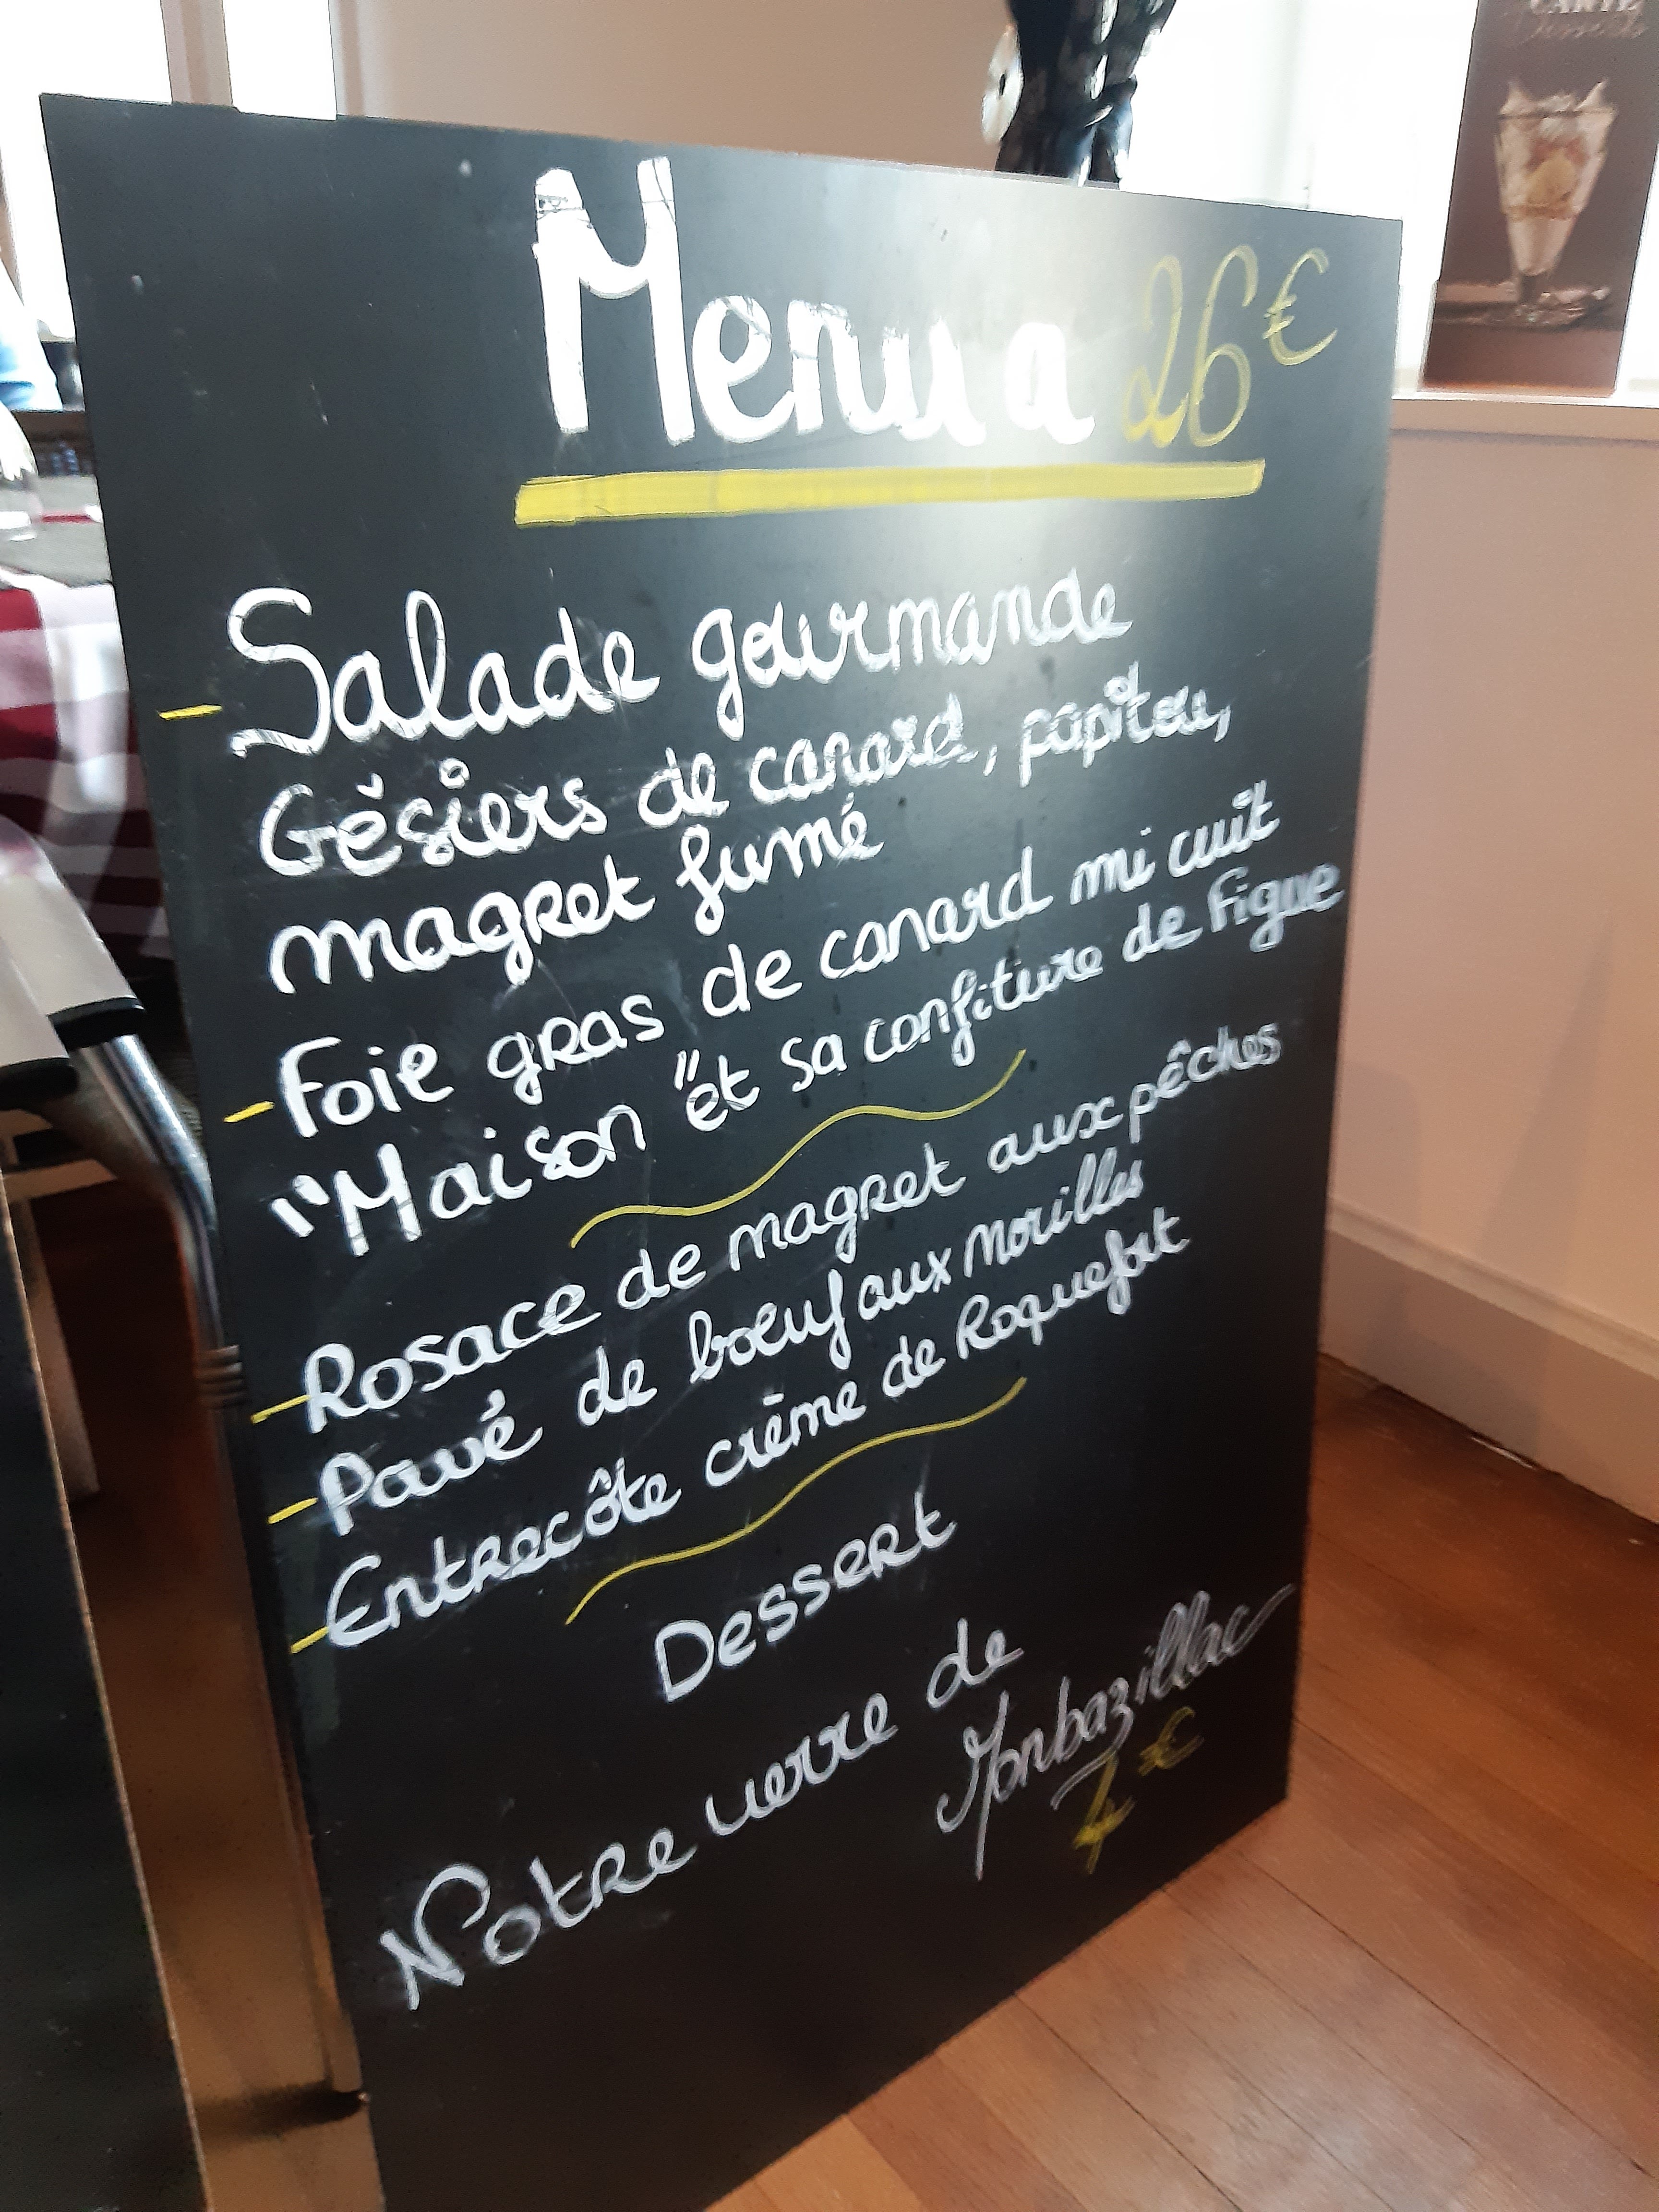 CARTE
Desserts
Menu a 26€
- Salade gourmande
Gésiers de canard, papitou,
magret fumé
- Foie gras de canard mi cuit
"Maison" et sa confiture de Figue
- Rosace de magret aux pêches
- Pavé de bœuf aux Morilles
- Entrecôte crème de Roquefort
Dessert
Notre verre de
Monbazillac
4€